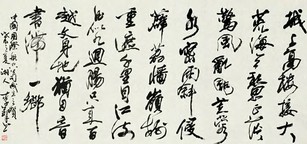 城上高樓接大
荒海天愁思正茫
茫驚風亂颭芙蓉
水密雨斜侵
薜荔牆嶺樹
重遮千里目江
流曲似九迴腸共來百
越文身地猶自音
書滯一鄉